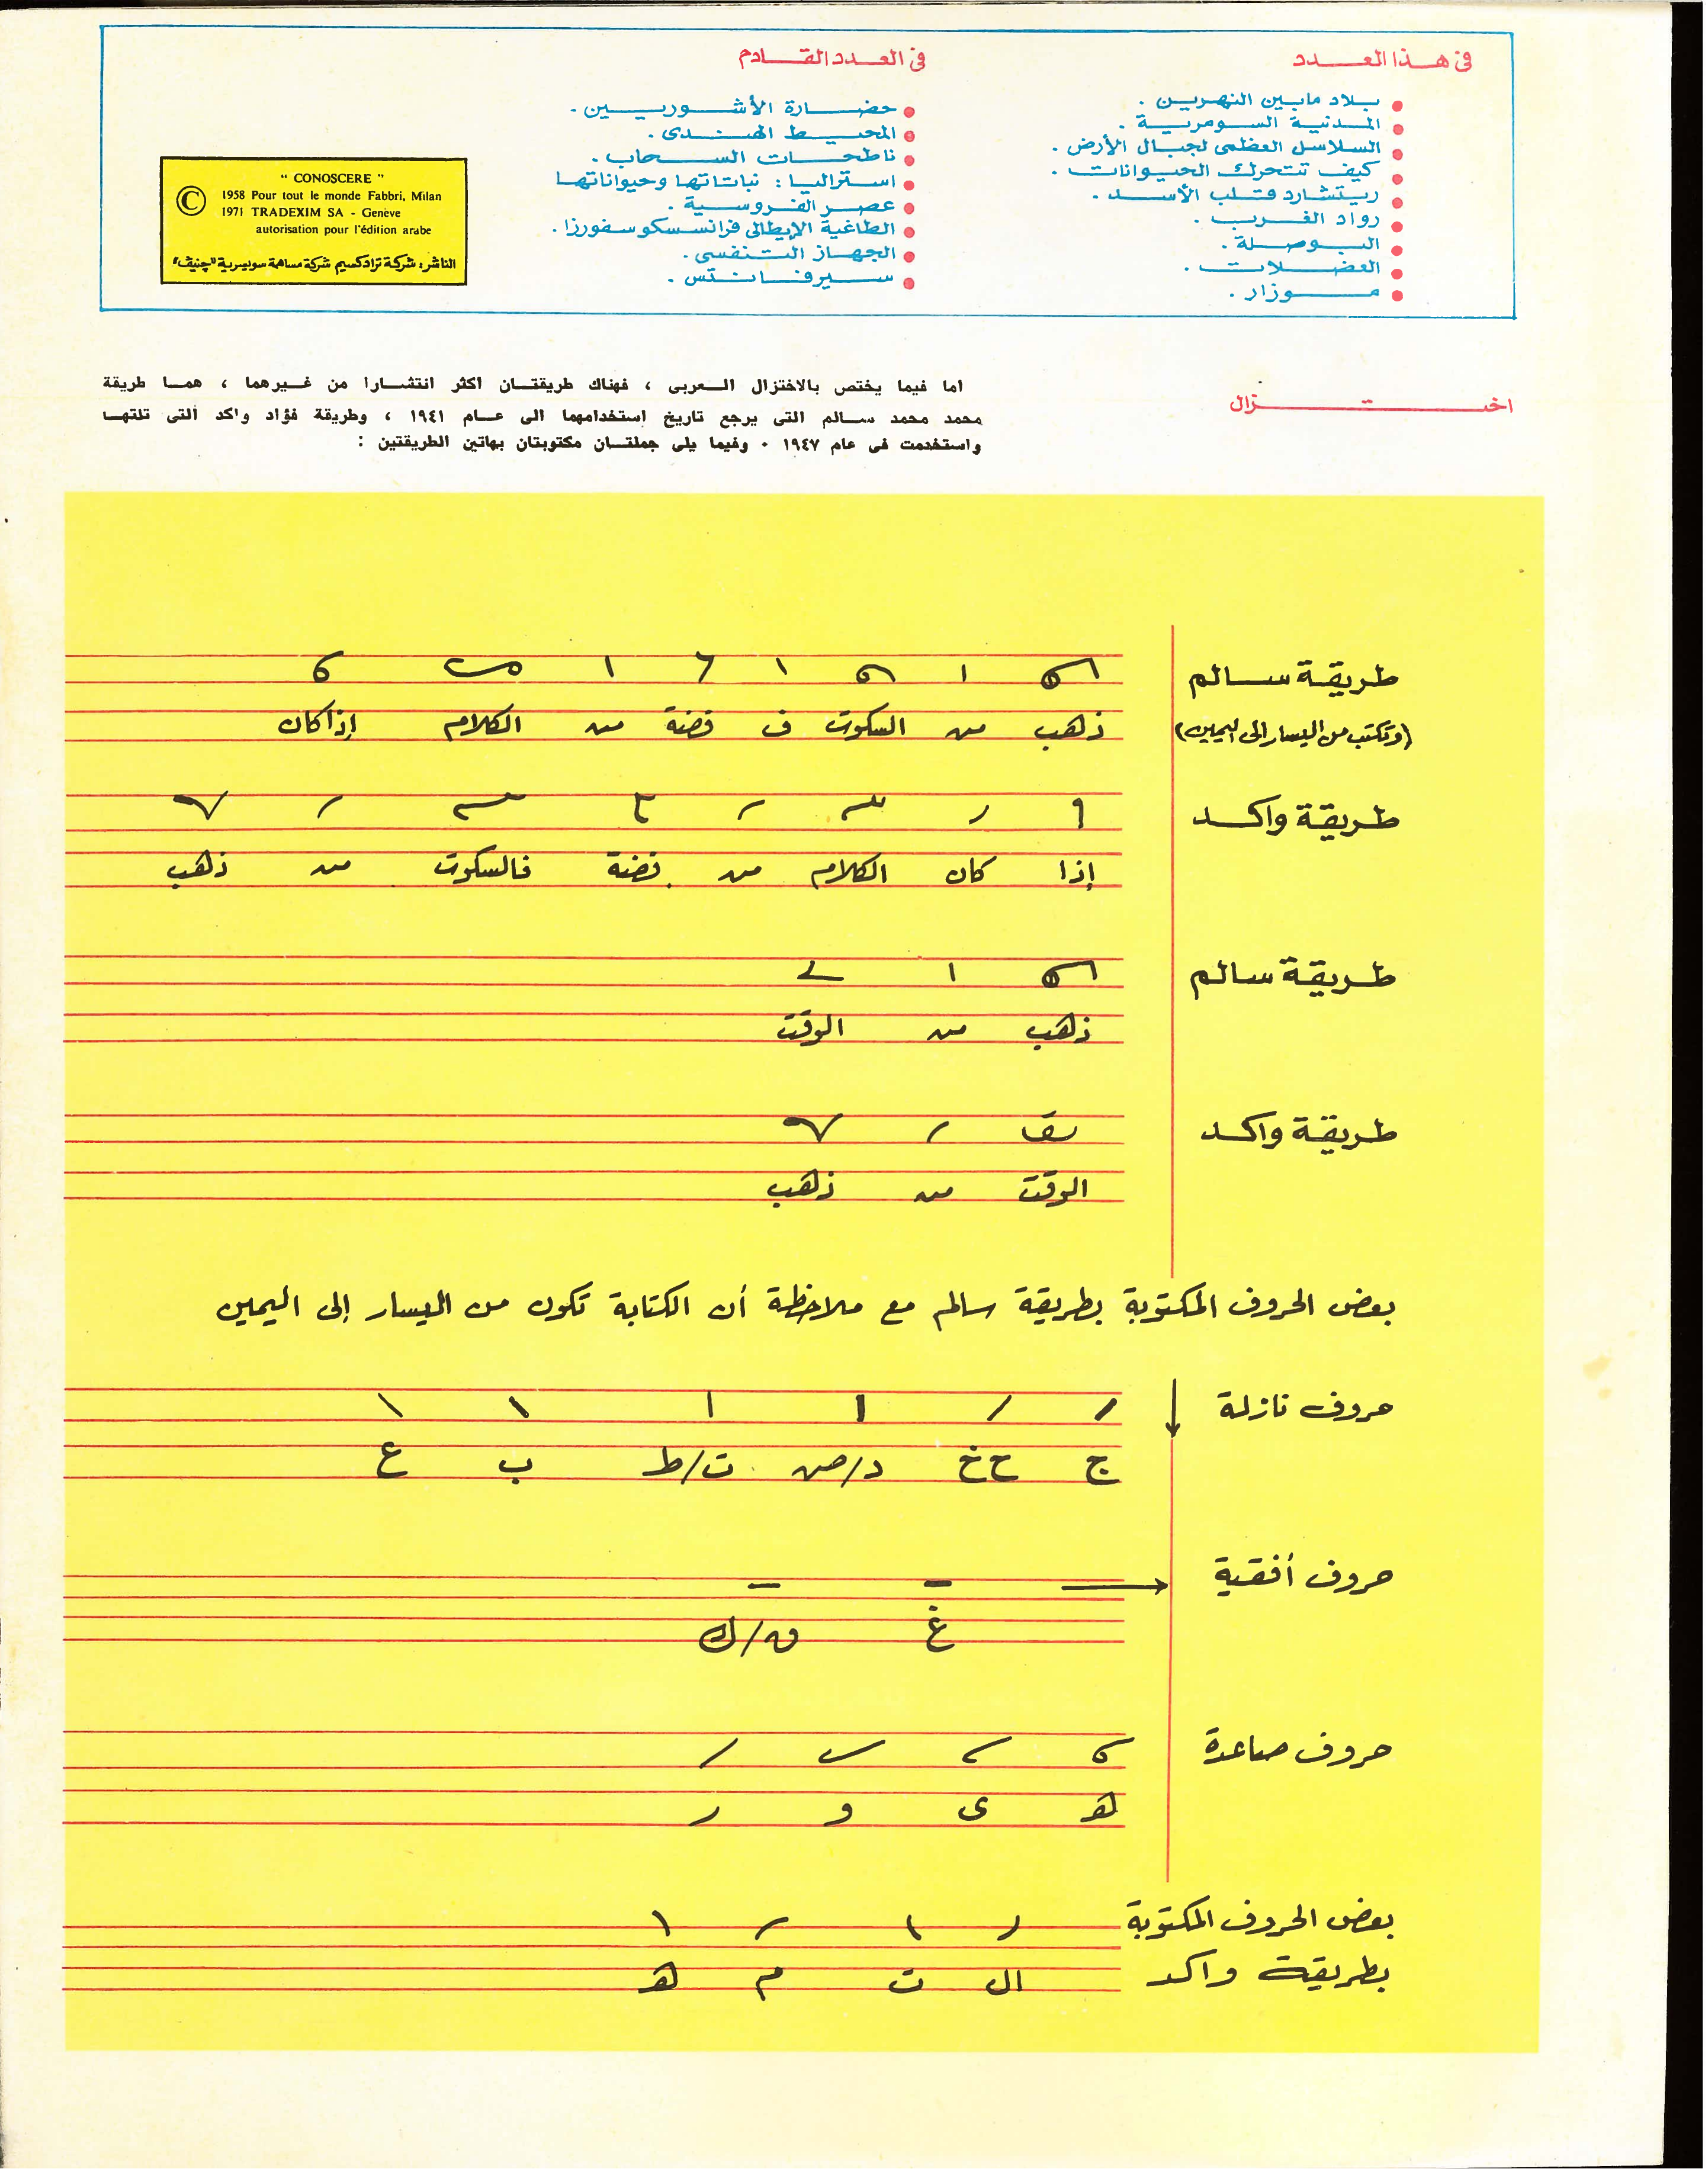 فى هذا العدد
بلاد مابين النهرين .
المدنية السومرية .
السلاسل العظمى لجبال الأرض .
كيف تتحرك الحيوانات .
ريتشارد قلب الأسد .
رواد الغرب .
البوصلة .
العضلات .
موزار .
فى العدد القادم
حضارة الأشوريين .
المحيط الهندى .
ناطحات السحاب .
استراليا : نباتاتها وحيواناتها
عصر الفروسية .
الطاغية الإيطالى فرانسسكو سفورزا .
الجهاز التنفسى .
سيرفانتس .
" CONOSCERE "
© 1958 Pour tout le monde Fabbri, Milan
1971 TRADEXIM SA - Genève
autorisation pour l'édition arabe
الناشر : شركة ترادكسيم شركة مساهمة سويسرية "چنيف"
اختزال
اما فيما يختص بالاختزال العربى ، فهناك طريقتان اكثر انتشارا من غيرهما ، هما طريقة
محمد محمد سالم التى يرجع تاريخ استخدامهما الى عام ١٩٤١ ، وطريقة فؤاد واكد التى تلتها
واستخدمت فى عام ١٩٤٧ . وفيما يلى جملتان مكتوبتان بهاتين الطريقتين :
طريقة سالم
(وتكتب من اليسار إلى اليمين)
ذهب من السكوت ف فضة من الكلام إذا كان
طريقة واكد
إذا كان الكلام من فضة فالسكوت من ذهب
طريقة سالم
ذهب من الوقت
طريقة واكد
الوقت من ذهب
بعض الحروف المكتوبة بطريقة سالم مع ملاحظة أن الكتابة تكون من اليسار إلى اليمين
حروف نازلة
ج ح خ د/ض ت/ط ب ع
حروف أفقية
غ ق/ك
حروف صاعدة
هـ ى و ر
بعض الحروف المكتوبة
بطريقة واكد
ال ت م هـ